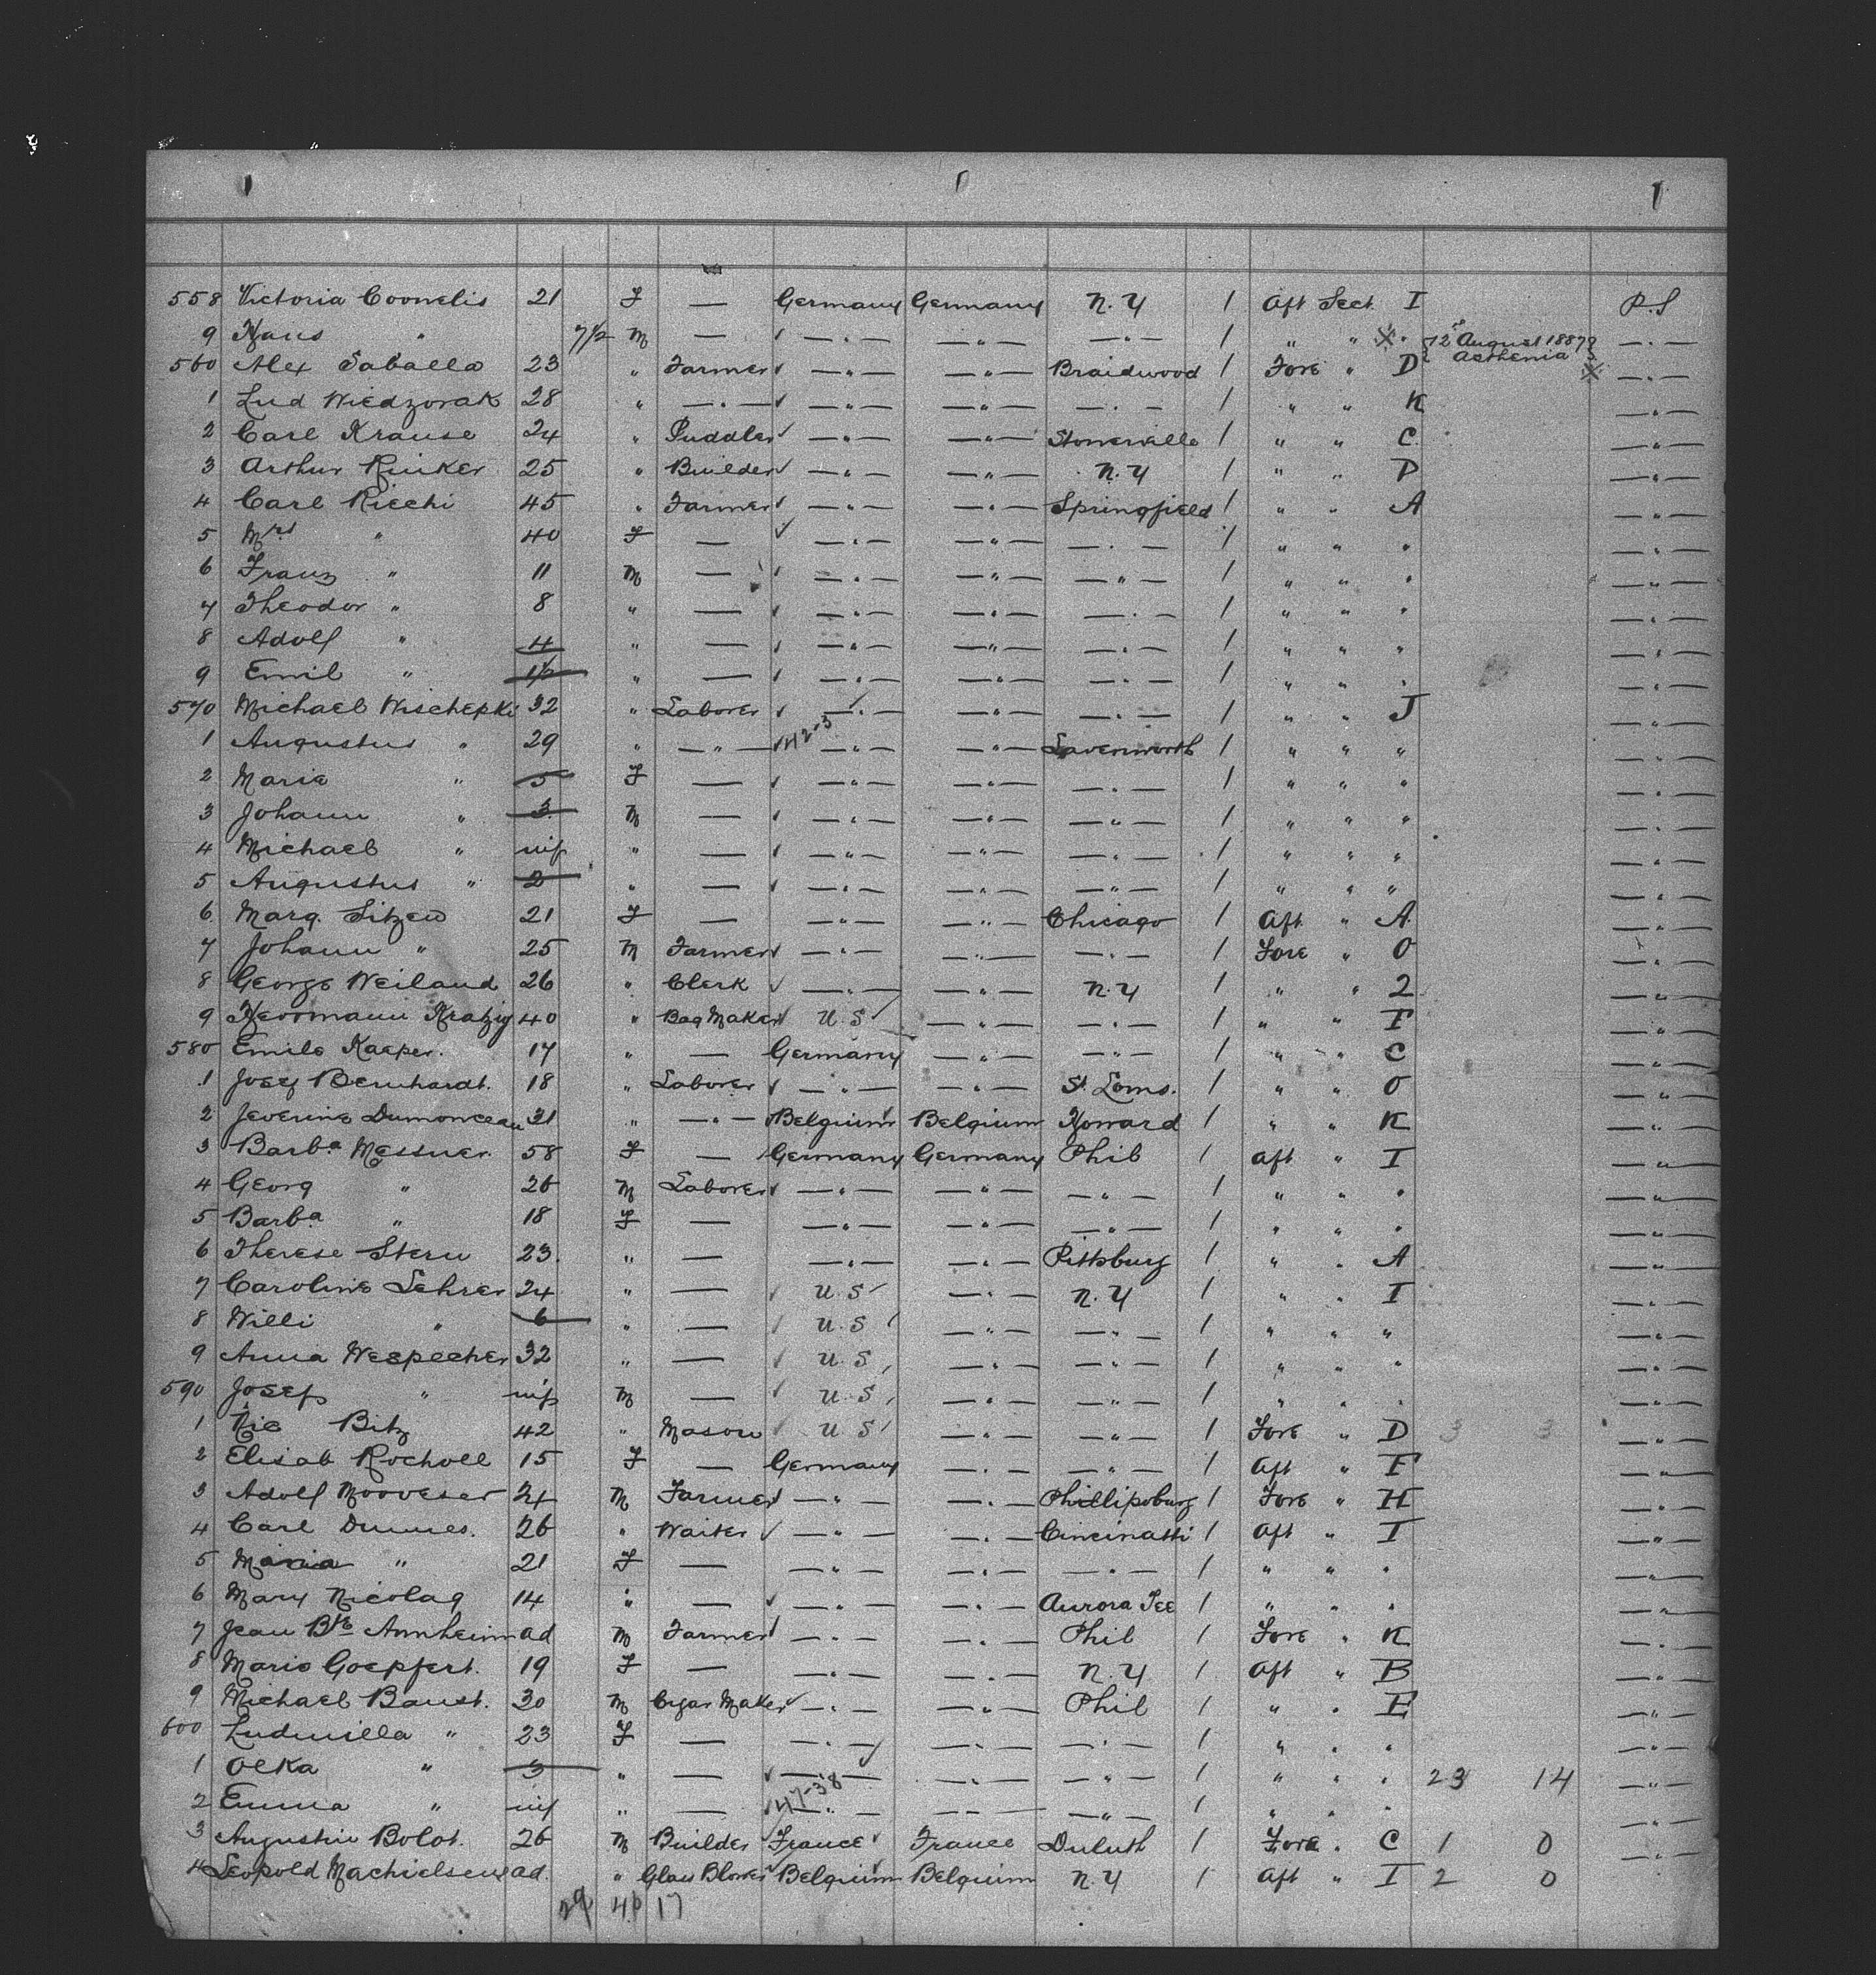 558 Victoria Coonelis 21 F — Germany Germany N.Y 1 Aft Sect. I P.S
9 Hans " 7/12 M — — " — — " — — " — 1 " " " 12 August 1887 Asthenia — " —
560 Alex Saballa 23 " Farmer — " — — " — Braidwood 1 Fore " D — " —
1 Lud Wiedzorak 28 " — " — — " — — " — — " — 1 " " K — " —
2 Carl Krause 24 " Puddler — " — — " — 1 " " C — " —
3 Arthur Rinker 25 " Builder — " — — " — N.Y 1 " " D — " —
4 Carl Riechi 45 " Farmer — " — — " — Springfield 1 " " A — " —
5 Mrs " 40 F — — " — — " — — " — 1 " " " — " —
6 Franz " 11 M — — " — — " — — " — 1 " " " — " —
7 Theodor " 8 " — — " — — " — — " — 1 " " " — " —
8 Adolf " 4 " — — " — — " — — " — 1 " " " — " —
9 Emil " 1½ " — — " — — " — — " — 1 " " " — " —
570 Michael Wischepki 32 " Laborer — " — — " — — " — 1 " " J — " —
1 Augustus " 29 " — " — 142-3 — " — — " — Lavenworth 1 " " " — " —
2 Maria " 5 F — — " — — " — — " — 1 " " " — " —
3 Johann " 3 M — — " — — " — — " — 1 " " " — " —
4 Michael " inf " — — " — — " — — " — 1 " " " — " —
5 Augustus " 2 " — — " — — " — — " — 1 " " " — " —
6 Marg. Sitzew 21 F — — " — — " — Chicago 1 Aft " A — " —
7 Johann " 25 M Farmer — " — — " — — " — 1 Fore " O — " —
8 George Weiland 26 " Clerk — " — — " — N.Y 1 " " 2 — " —
9 Herrmann Kratzig 40 " Bag Maker U.S — " — — " — 1 " " F — " —
580 Emile Kaeper. 17 " — Germany — " — — " — 1 " " C — " —
1 Josef Bernhardt. 18 " Laborer — " — — " — St. Louis. 1 " " O — " —
2 Severine Dumonceau 31 " — " — Belgium Belgium Howard 1 " " K — " —
3 Barba Messner. 58 F — Germany Germany Phil 1 Aft " I — " —
4 Georg " 26 M Laborer — " — — " — — " — 1 " " " — " —
5 Barba " 18 F — — " — — " — — " — 1 " " " — " —
6 Therese Stern 23. " — — " — — " — Pittsburg 1 " " A — " —
7 Caroline Lehrer 24 " — U.S — " — N.Y 1 " " I — " —
8 Willi " 6 " — U.S — " — — " — 1 " " " — " —
9 Anna Wespecher 32 " — U.S — " — — " — 1 " " " — " —
590 Josef " inf M — U.S — " — — " — 1 " " " — " —
1 Nic Bitz 42 " Mason U.S — " — — " — 1 Fore " D 3 3 — " —
2 Elisab Rocholl 15 F — Germany — " — — " — 1 Aft " F — " —
3 Adolf 24 M Farmer — " — — " — Phillipsburg 1 Fore " H — " —
4 Carl Dunnes. 26 " Waiter — " — — " — Cincinatti 1 Aft " I — " —
5 Maria " 21 F — — " — — " — — " — 1 " " " — " —
6 Mary Nicolay 14 " — — " — — " — Aurora 1 " " " — " —
7 Jean Bte Arnheim ad M Farmer — " — — " — Phil 1 Fore " K — " —
8 Marie Goepfert. 19 F — — " — — " — N.Y 1 Aft " B — " —
9 Michael Baust. 30 M Cigar Maker — " — — " — Phil 1 " " E — " —
600 Ludmilla " 23 F — — " — — " — — " — 1 " " " — " —
1 Olka " 3 " — — " — — " — — " — 1 " " " 23 14 — " —
2 Emma " inf " — 147-38 — " — — — — " — 1 " " " — " —
3 Augustin Bolot. 26 M Builder France France Duluth 1 Fore " C 1 0 — " —
4 Leopold Machielsens ad. " Glass Blower Belgium Belgium N.Y 1 Aft " I 2 0
29 46 17